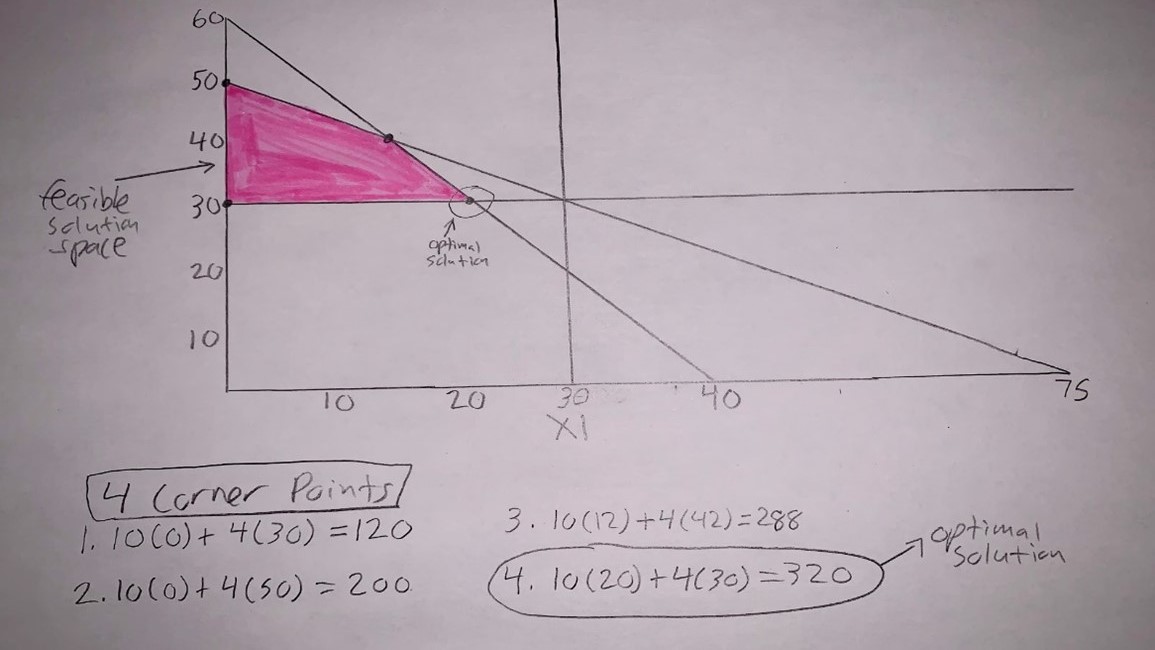 60
50
40
30
20
10
feasible
solution
space
optimal
solution
10 20 30 40 75
X1
4 Corner Points
1. 10(0)+4(30)=120
2. 10(0)+4(50)=200
3. 10(12)+4(42)=288
4. 10(20)+4(30)=320
optimal
solution